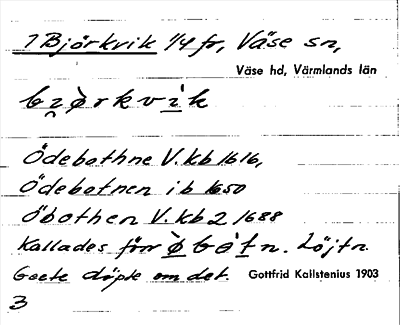 1 Björkvik 1/4 fr, Väse sn,
Väse hd, Värmlands län
Ödebothne V. kb 1616,
Ödebotnen ib 1650
Öbothen V. kb 2 1688
Kallades förr Löjtn.
Geete döpte om det. Gottfrid Kallstenius 1903
3